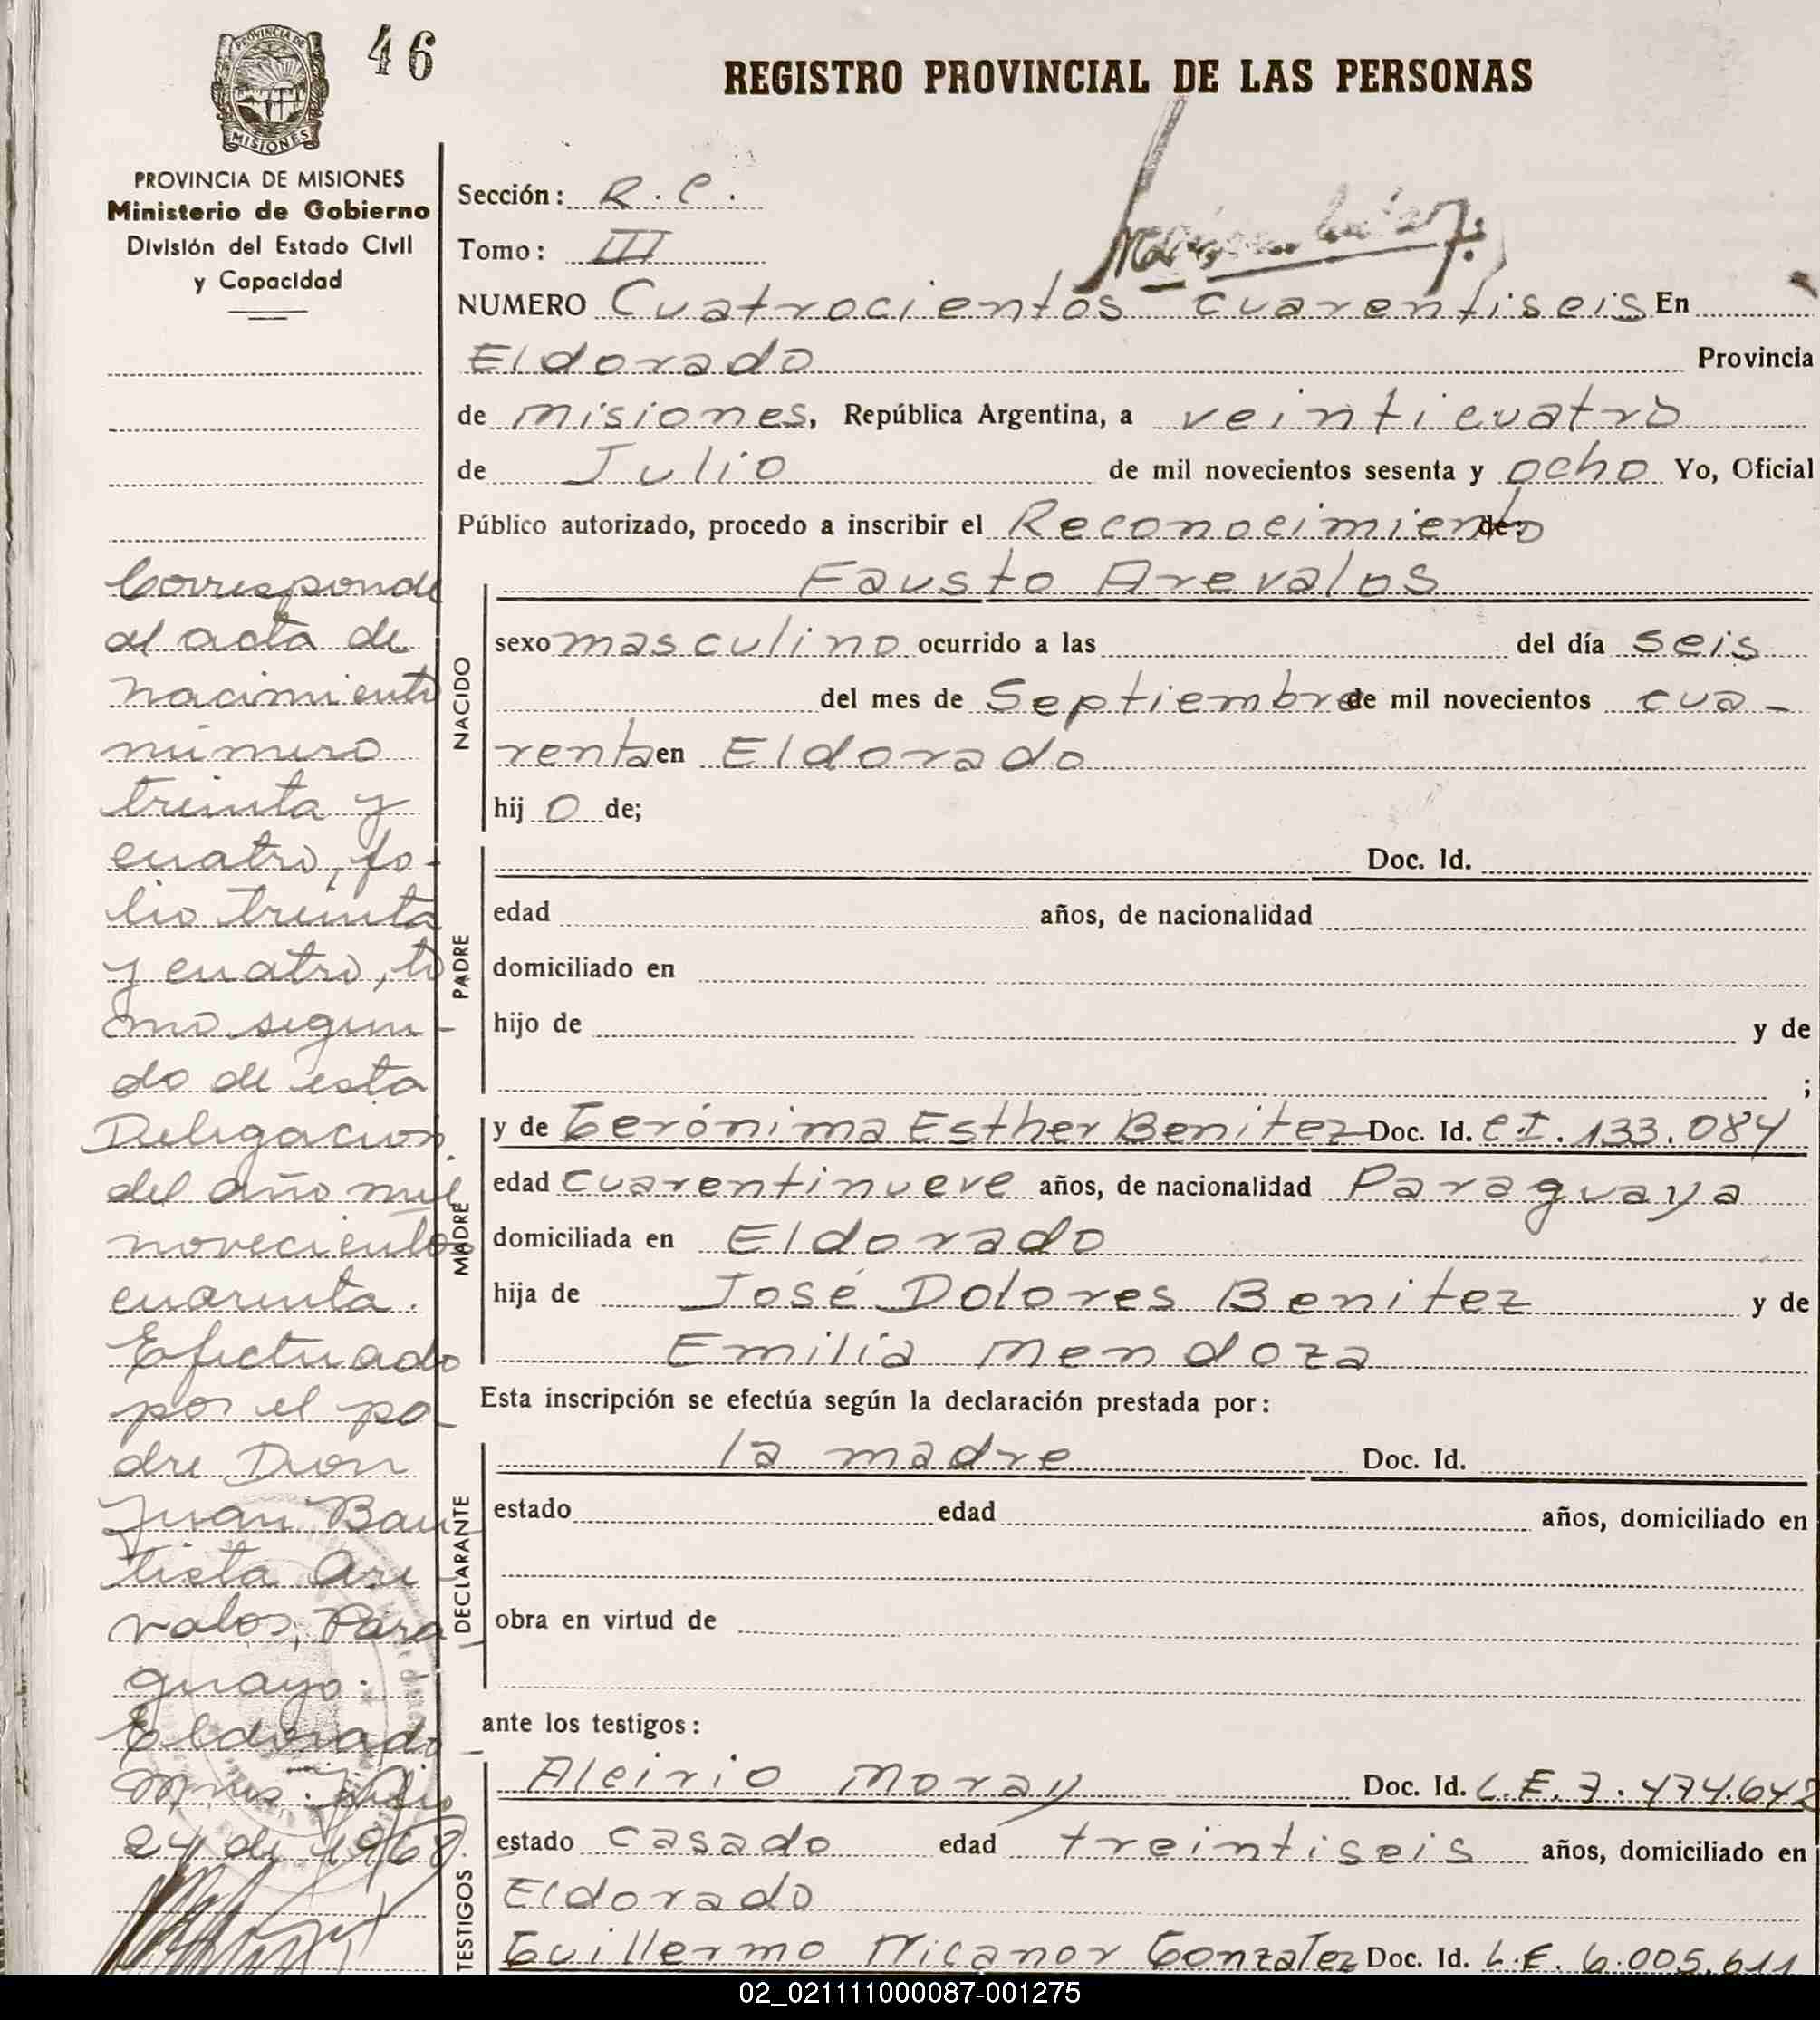 46
REGISTRO PROVINCIAL DE LAS PERSONAS
PROVINCIA DE
MISIONES
PROVINCIA DE MISIONES
Ministerio de Gobierno
División del Estado Civil
y Capacidad
Corresponde
al acta de
nacimiento
número
treinta y
cuatro, fo-
lio treinta
y cuatro, to
mo segun-
do de esta
Delegacion
del año mil
novecientos
cuarenta.
Efectuado
por el pa-
dre Don
Juan Bau
tista Are
valos, Para
guayo.
Eldorado
Mnes. Julio
24 de 1968
Sección: R. C.
Tomo: III
NUMERO Cuatrocientos cuarentiseis En
Eldorado Provincia
de Misiones, República Argentina, a veinticuatro
de Julio de mil novecientos sesenta y ocho Yo, Oficial
Público autorizado, procedo a inscribir el Reconocimiento de:
Fausto Arevalos
NACIDO
sexo masculino ocurrido a las del día seis
del mes de Septiembre de mil novecientos cua-
renta en Eldorado
hij o de;
PADRE
Doc. Id.
edad años, de nacionalidad
domiciliado en
hijo de y de
;
MADRE
y de Gerónima Esther Benitez Doc. Id. C.I. 133.084
edad cuarentinueve años, de nacionalidad Paraguaya
domiciliada en Eldorado
hija de José Dolores Benitez y de
Emilia Mendoza
Esta inscripción se efectúa según la declaración prestada por:
DECLARANTE
la madre Doc. Id.
estado edad años, domiciliado en
obra en virtud de
ante los testigos:
TESTIGOS
Aleirio Moray Doc. Id. L.E. 7.474.642
estado casado edad treintiseis años, domiciliado en
Eldorado
Guillermo Nicanor Gonzalez Doc. Id. L.E. 6.005.611
02_021111000087-001275